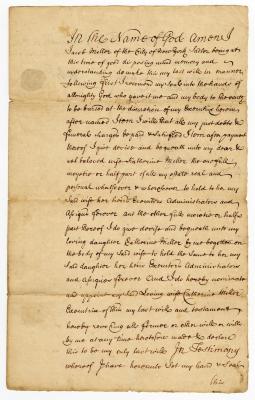 In The Name of God Amen I
Jacob Miller of the City of New York Sailor being at
this time of good disposing mind memory and
understanding do make this my last will in manner
following first I recommend my Soul into the hands of
almighty God who gave it me and my body to the earth
to be buried at the discretion of my Executrix herein
after named Item I will that all my just debts &
funeral charges be paid & satisfied Item after payment
thereof I give devise and bequeath unto my dear &
well beloved wife Catherine Miller the one full
moyetie or half part of all my estate real and
personal whatsoever & wheresoever to hold to her my
Said wife her heirs Executors Administrators and
Assigns forever and the other full moyetie or half
part thereof I do give devise and bequeath unto my
loving daughter Catherine Miller by me begotten on
the body of my Said wife to hold the Same to her my
Said daughter her heirs Executors Administrators
and Assigns forever And I do hereby nominate
and appoint my Said Loving wife Catherine Miller
Executrix of this my last will and testament
hereby revoking all former or other will or wills
by me at any time heretofore made & declare
this to be my only last will In Testimony
whereof I have hereunto Set my hand & Seal
this